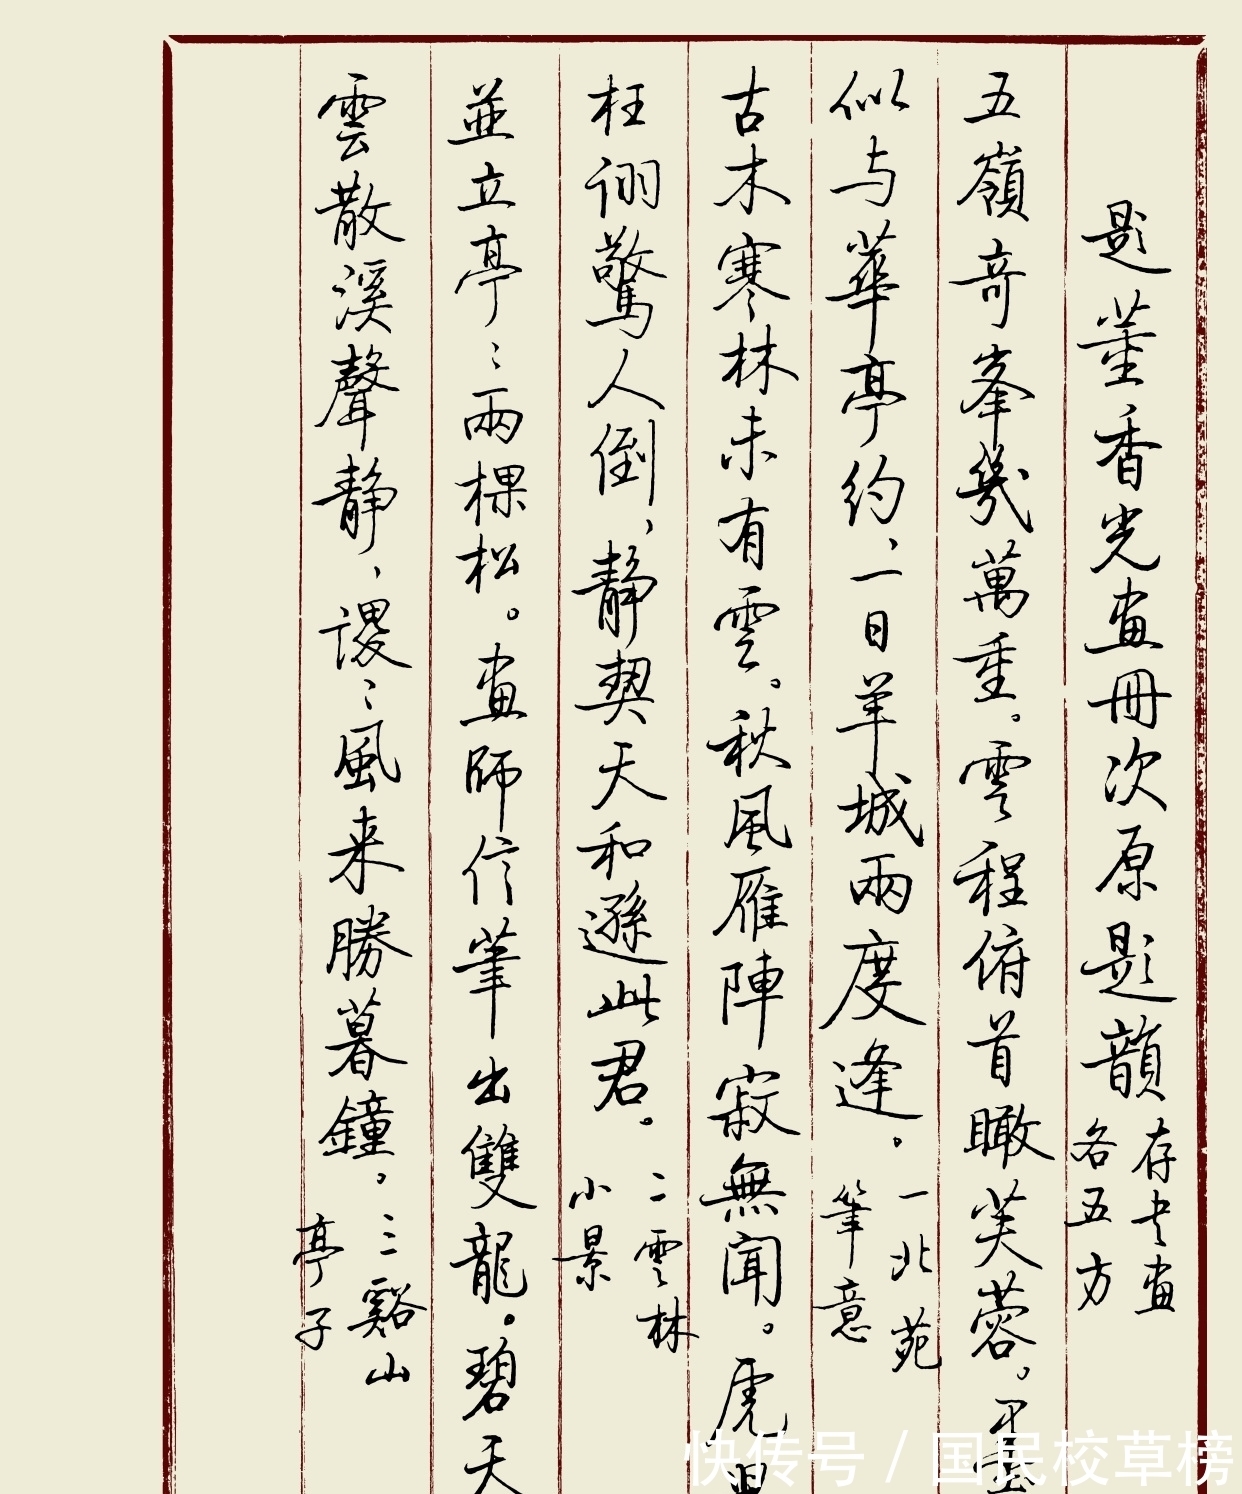 題董香光畫冊次原題韻
存者畫
各五方
五嶺奇峯幾萬重。雲程俯首瞰芙蓉。平
似与華亭約，一日羊城兩度逢。
一北苑
筆意
古木寒林未有雲。秋風雁陣寂無聞。虎
枉诩驚人倒，靜契天和遜此君。
二雲林
小景
並立亭：兩棵松。畫師信筆出雙龍。碧天
雲散溪聲靜，謖：風来勝暮鐘。
三谿山
亭子
快传号 / 国民校草榜